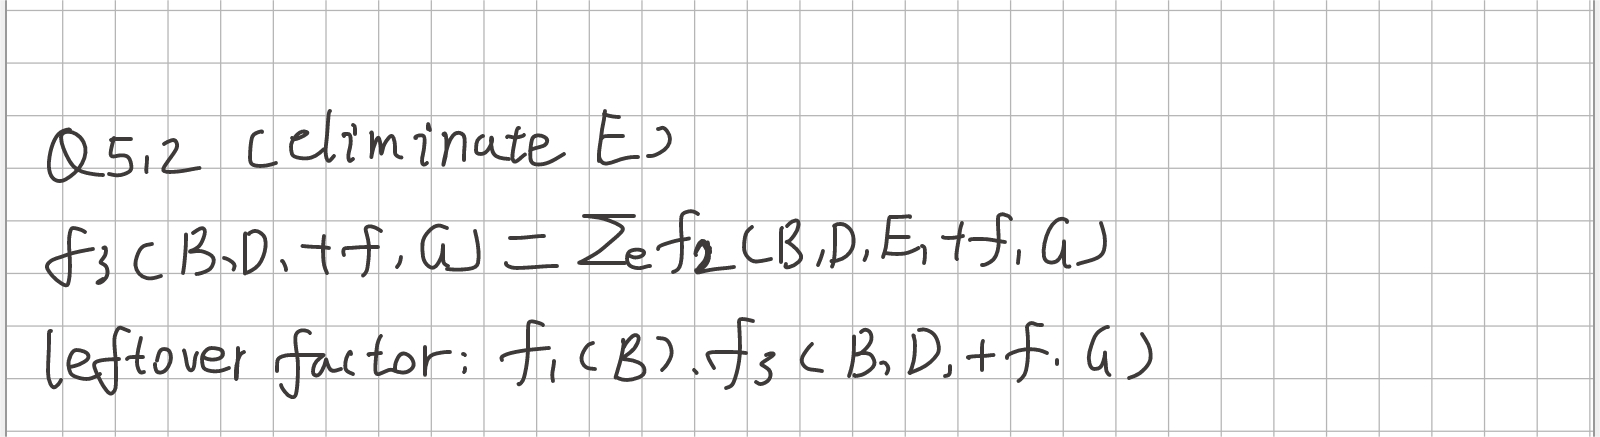 Q5.2 (eliminate E)
f3 (B, D, +f, G) = Σe f2 (B, D, E, +f, G)
leftover factor: f1 (B), f3 (B, D, +f, G)